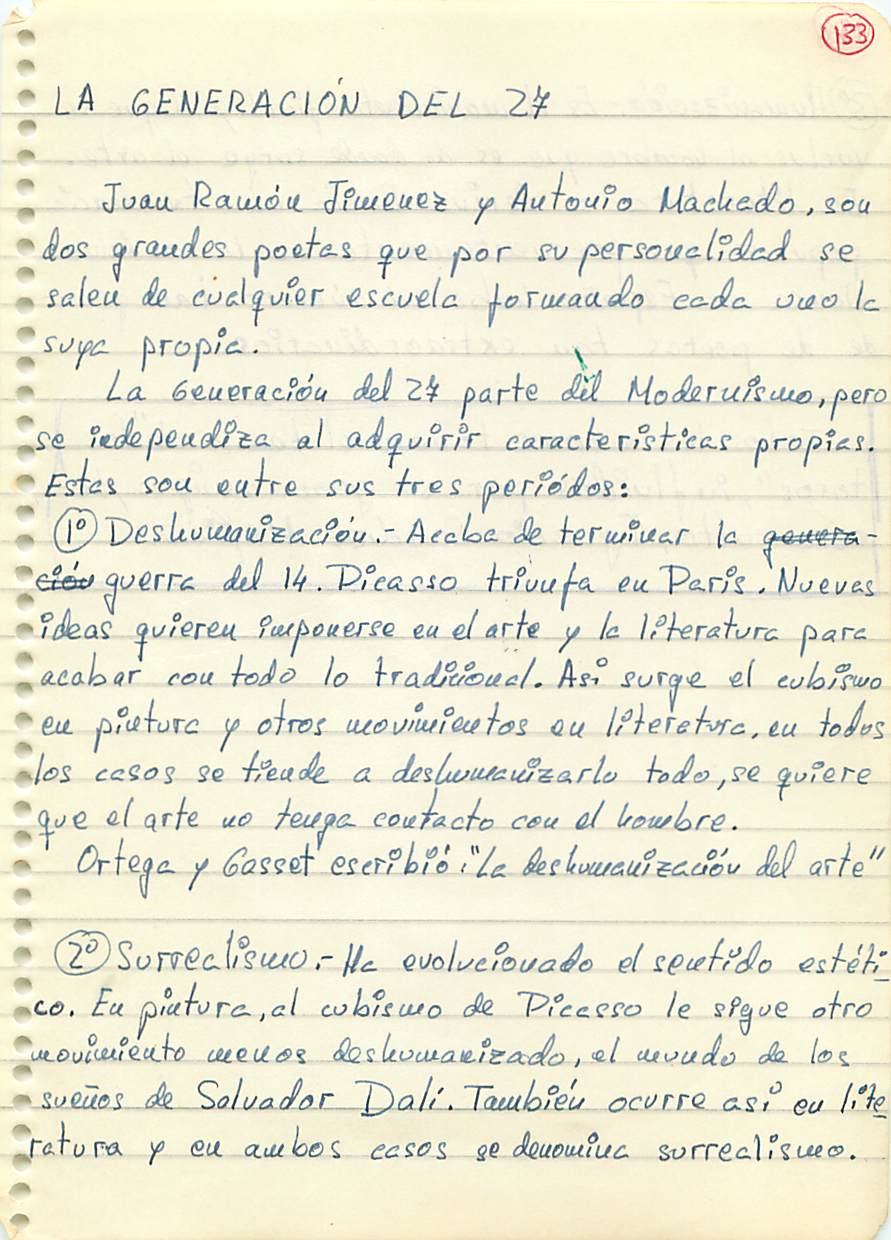 133
LA GENERACIÓN DEL 27
Juan Ramón Jimenez y Antonio Machado, son
dos grandes poetas que por su personalidad se
salen de cualquier escuela formando cada uno la
suya propia.
La Generación del 27 parte del Modernismo, pero
se independiza al adquirir caracteristicas propias.
Estas son entre sus tres periódos:
1º Deshumanización.- Acaba de terminar la genera-
ción guerra del 14. Picasso triunfa en Paris. Nuevas
ideas quieren imponerse en el arte y la literatura para
acabar con todo lo tradicional. Asi surge el cubismo
en pintura y otros movimientos en literatura, en todos
los casos se tiende a deshumanizarlo todo, se quiere
que el arte no tenga contacto con el hombre.
Ortega y Gasset escribió: "La deshumanización del arte"
2º Surrealismo.- Ha evolucionado el sentido estéti-
co. En pintura, al cubismo de Picasso le sigue otro
movimiento menos deshumanizado, el mundo de los
sueños de Salvador Dalí. También ocurre asi en lite
ratura y en ambos casos se denomina surrealismo.